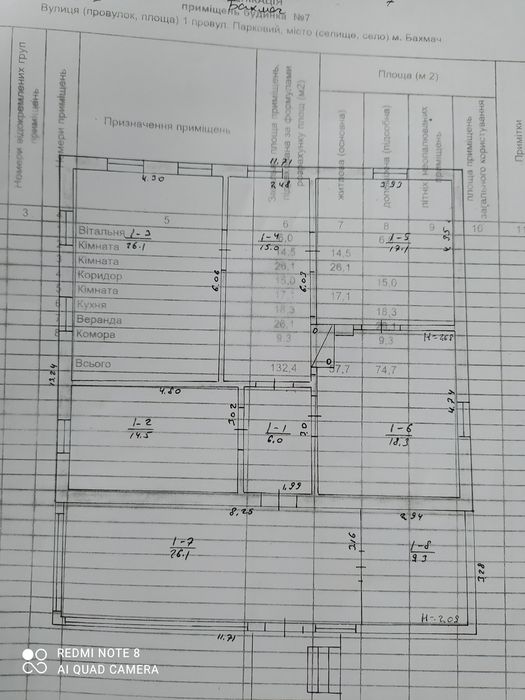 Бахмач
приміщень будинка №7
Вулиця (провулок, площа) 1 провул. Парковий, місто (селище, село) м. Бахмач
Номери відокремлених груп приміщень
Номери приміщень
Призначення приміщень
Площа (м 2)
житлова (основна)
допоміжна (підсобна)
літніх неопалюваних приміщень
площа приміщень загального користування
Примітки
11.71
4.30
2.48
3.93
3 5 6 7 8 9 10
Вітальня 6,0
Кімната 14,5 14,5
Кімната 26,1 26,1
Коридор 15,0 15,0
Кімната 17,1 17,1
Кухня 18,3 18,3
Веранда 26,1
Комора 9,3 9,3
Всього 132,4 57,7 74,7
1-3
26.1
1-4
15.0
1-5
17.1
4.35
6.08
6.03
H=268
13.24
4.80
3.02
3.0
4.74
1-2
14.5
1-1
6.0
1-6
18.3
1.99
8.25
2.94
1-7
26.1
3.16
1-8
9.3
3.28
H=2.09
11.71
REDMI NOTE 8
AI QUAD CAMERA